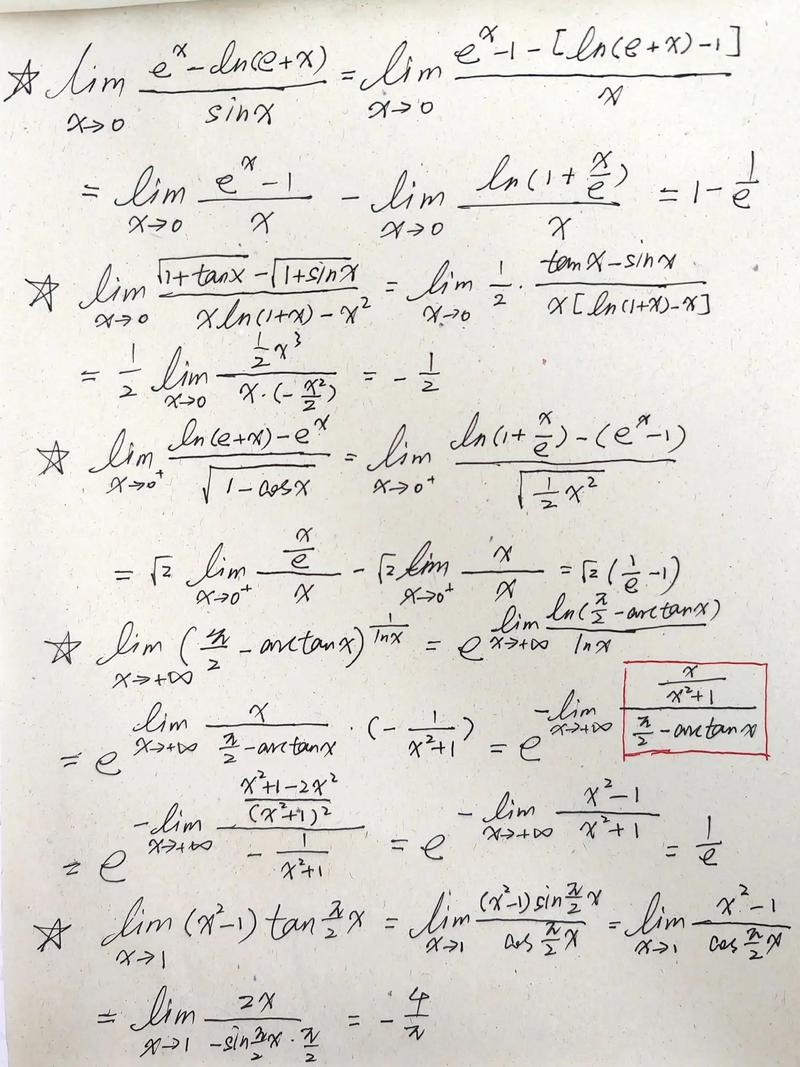 ☆ lim_{x→0} \frac{e^x - ln(e+x)}{sinx} = lim_{x→0} \frac{e^x - 1 - [ln(e+x) - 1]}{x}
= lim_{x→0} \frac{e^x - 1}{x} - lim_{x→0} \frac{ln(1 + \frac{x}{e})}{x} = 1 - \frac{1}{e}
☆ lim_{x→0} \frac{\sqrt{1+tanx} - \sqrt{1+sinx}}{x ln(1+x) - x^2} = lim_{x→0} \frac{1}{2} · \frac{tanx - sinx}{x[ln(1+x) - x]}
= \frac{1}{2} lim_{x→0} \frac{\frac{1}{2}x^3}{x·(-\frac{x^2}{2})} = -\frac{1}{2}
☆ lim_{x→0^+} \frac{ln(e+x) - e^x}{\sqrt{1 - cosx}} = lim_{x→0^+} \frac{ln(1 + \frac{x}{e}) - (e^x - 1)}{\sqrt{\frac{1}{2}x^2}}
= \sqrt{2} lim_{x→0^+} \frac{\frac{x}{e}}{x} - \sqrt{2} lim_{x→0^+} \frac{x}{x} = \sqrt{2}(\frac{1}{e} - 1)
☆ lim_{x→+∞} (\frac{π}{2} - arctanx)^{\frac{1}{lnx}} = e^{lim_{x→+∞} \frac{ln(\frac{π}{2} - arctanx)}{lnx}}
= e^{lim_{x→+∞} \frac{x}{\frac{π}{2} - arctanx} · (-\frac{1}{x^2+1})} = e^{-lim_{x→+∞} \frac{\frac{x}{x^2+1}}{\frac{π}{2} - arctanx}}
= e^{-lim_{x→+∞} \frac{\frac{x^2+1-2x^2}{(x^2+1)^2}}{-\frac{1}{x^2+1}}} = e^{-lim_{x→+∞} \frac{x^2-1}{x^2+1}} = \frac{1}{e}
☆ lim_{x→1} (x^2-1) tan\frac{π}{2}x = lim_{x→1} \frac{(x^2-1) sin\frac{π}{2}x}{cos\frac{π}{2}x} = lim_{x→1} \frac{x^2-1}{cos\frac{π}{2}x}
= lim_{x→1} \frac{2x}{-sin\frac{π}{2}x · \frac{π}{2}} = -\frac{4}{π}